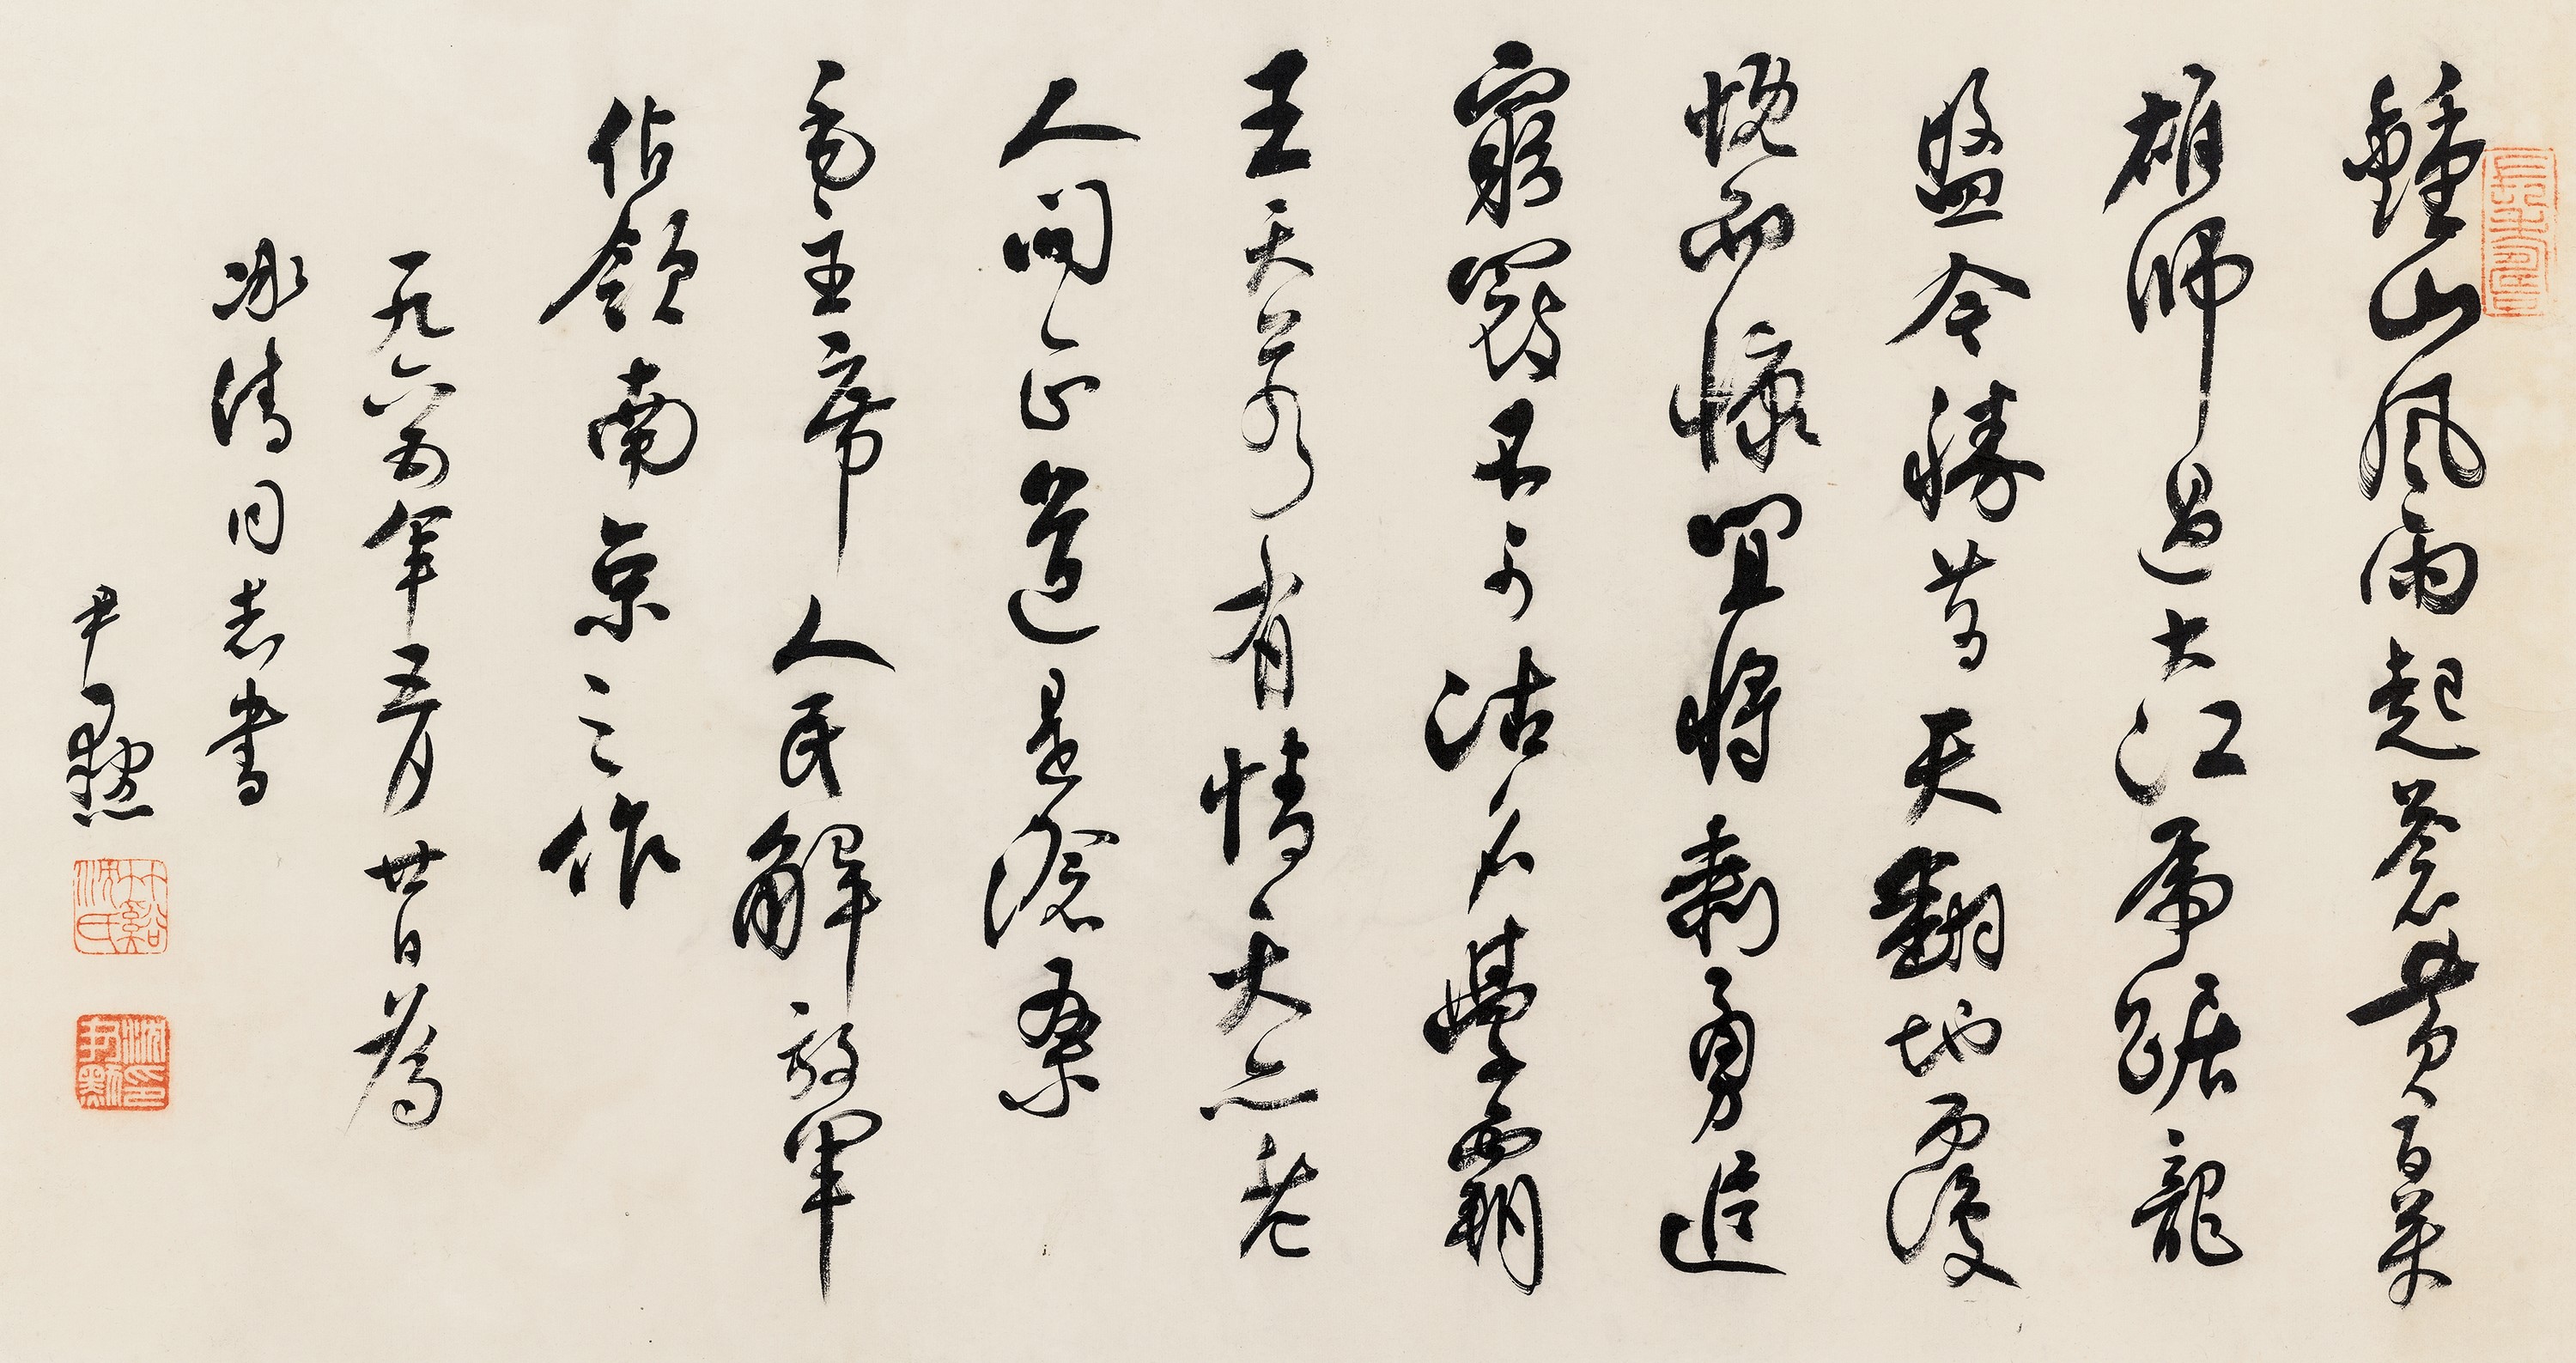 鍾山風雨起蒼黃百萬
雄師過大江虎踞龍
盤今勝昔天翻地覆
慨而慷宜將剩勇追
窮寇不可沽名學霸
王天若有情天亦老
人間正道是滄桑
毛主席人民解放軍
佔領南京之作
一九六五年五月廿日為
冰清同志書
尹默
竹谿沈氏
沈尹默印